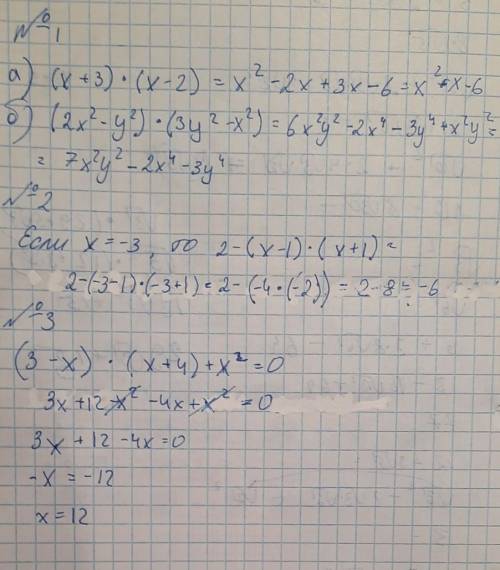 №1
а) (x+3)·(x-2) = x² -2x+3x-6 = x²+x-6
б) (2x²-y²)·(3y²-x²) = 6x²y²-2x⁴-3y⁴+x²y² =
= 7x²y² -2x⁴-3y⁴
№2
Если x=-3, то 2-(x-1)·(x+1) =
2-(-3-1)·(-3+1) = 2-(-4·(-2)) = 2-8 = -6
№3
(3-x)·(x+4)+x²=0
3x+12-x²-4x+x²=0
3x+12-4x=0
-x=-12
x=12